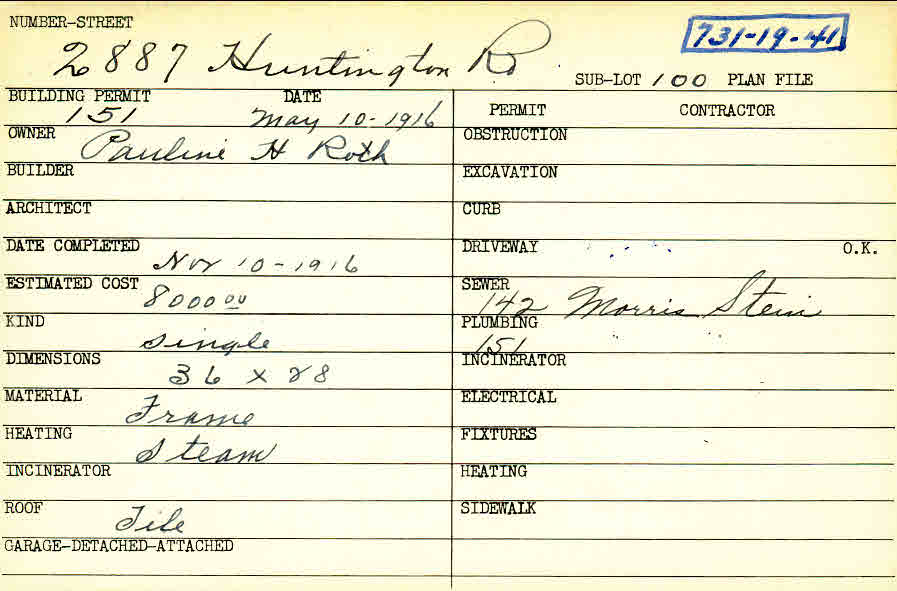 NUMBER-STREET
731-19-41
2887 Huntington Rd
SUB-LOT 100 PLAN FILE
BUILDING PERMIT DATE
151 May 10-1916
OWNER
Pauline H Roth
BUILDER
ARCHITECT
DATE COMPLETED
Nov 10-1916
ESTIMATED COST
8000 00
KIND
Single
DIMENSIONS
36 x 28
MATERIAL
Frame
HEATING
Steam
INCINERATOR
ROOF
Tile
GARAGE-DETACHED-ATTACHED
PERMIT CONTRACTOR
OBSTRUCTION
EXCAVATION
CURB
DRIVEWAY O.K.
SEWER
142 Morris Stein
PLUMBING
151
INCINERATOR
ELECTRICAL
FIXTURES
HEATING
SIDEWALK